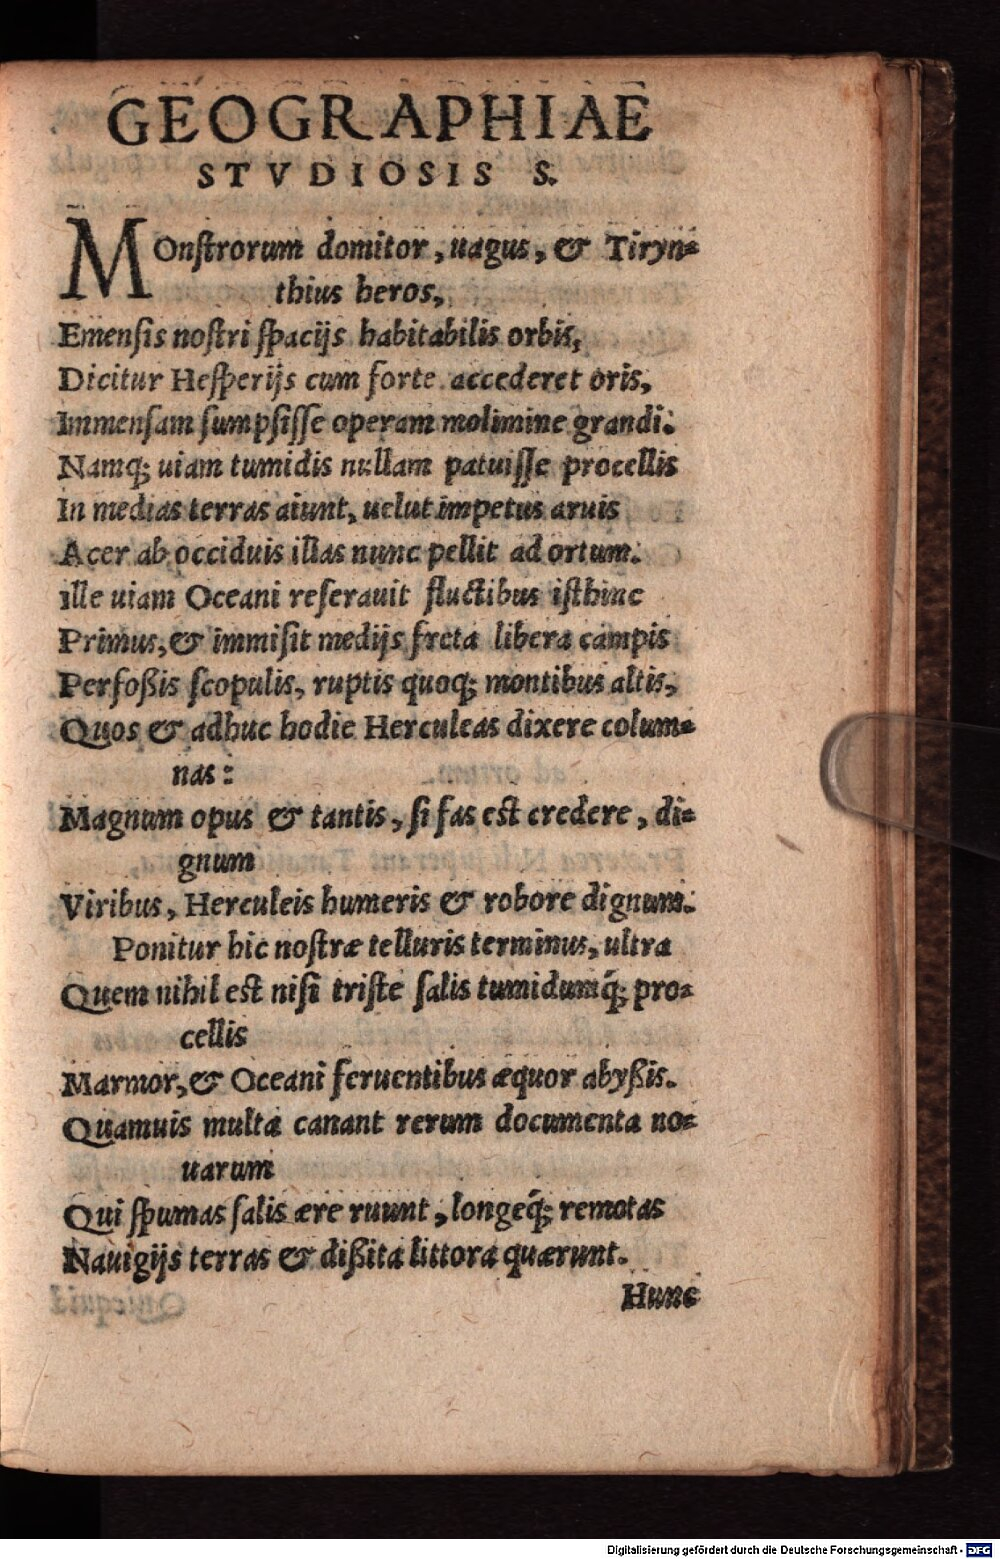 GEOGRAPHIAE
STVDIOSIS S.
MOnstrorum domitor, uagus, & Tiryn-
thius heros,
Emensis nostri spacijs habitabilis orbis,
Dicitur Hesperijs cum forte accederet oris,
Immensam sumpsisse operam molimine grandi.
Namq; uiam tumidis nullam patuisse procellis
In medias terras aiunt, uelut impetus aruis
Acer ab occiduis illas nunc pellit ad ortum.
ille uiam Oceani reserauit fluctibus isthinc
Primus, & immisit medijs freta libera campis
Perfoßis scopulis, ruptis quoq; montibus altis,
Quos & adhuc hodie Herculeas dixere colum-
nas:
Magnum opus & tantis, si fas est credere, di-
gnum
Viribus, Herculeis humeris & robore dignum.
Ponitur hic nostræ telluris terminus, ultra
Quem nihil est nisi triste salis tumidumq́; pro-
cellis
Marmor, & Oceani feruentibus æquor abyßis.
Quamuis multa canant rerum documenta no-
uarum
Qui spumas salis ære ruunt, longeq́; remotas
Nauigijs terras & dißita littora quærunt.
Hunc
Digitalisierung gefördert durch die Deutsche Forschungsgemeinschaft - DFG